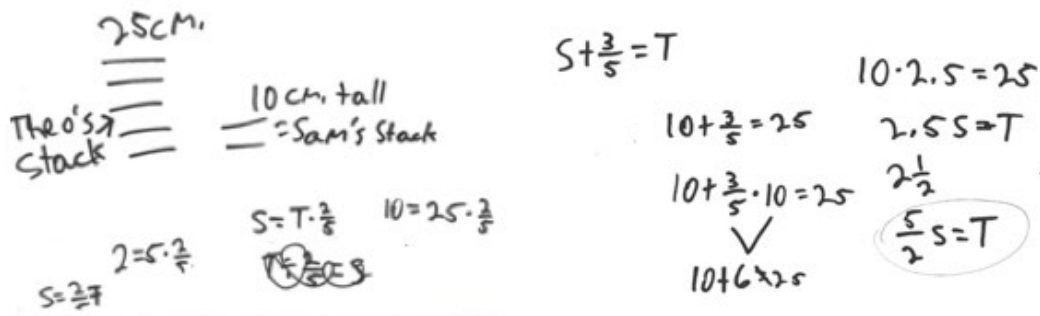 25cm.
Theo's
Stack
10 cm. tall
=Sam's Stack
S=T·2/5
10=25·2/5
2=5·2/5
S+3/5=T
10+3/5=25
10+3/5·10=25
10+6≠25
10·2.5=25
2.5S=T
2 1/2
5/2 S=T